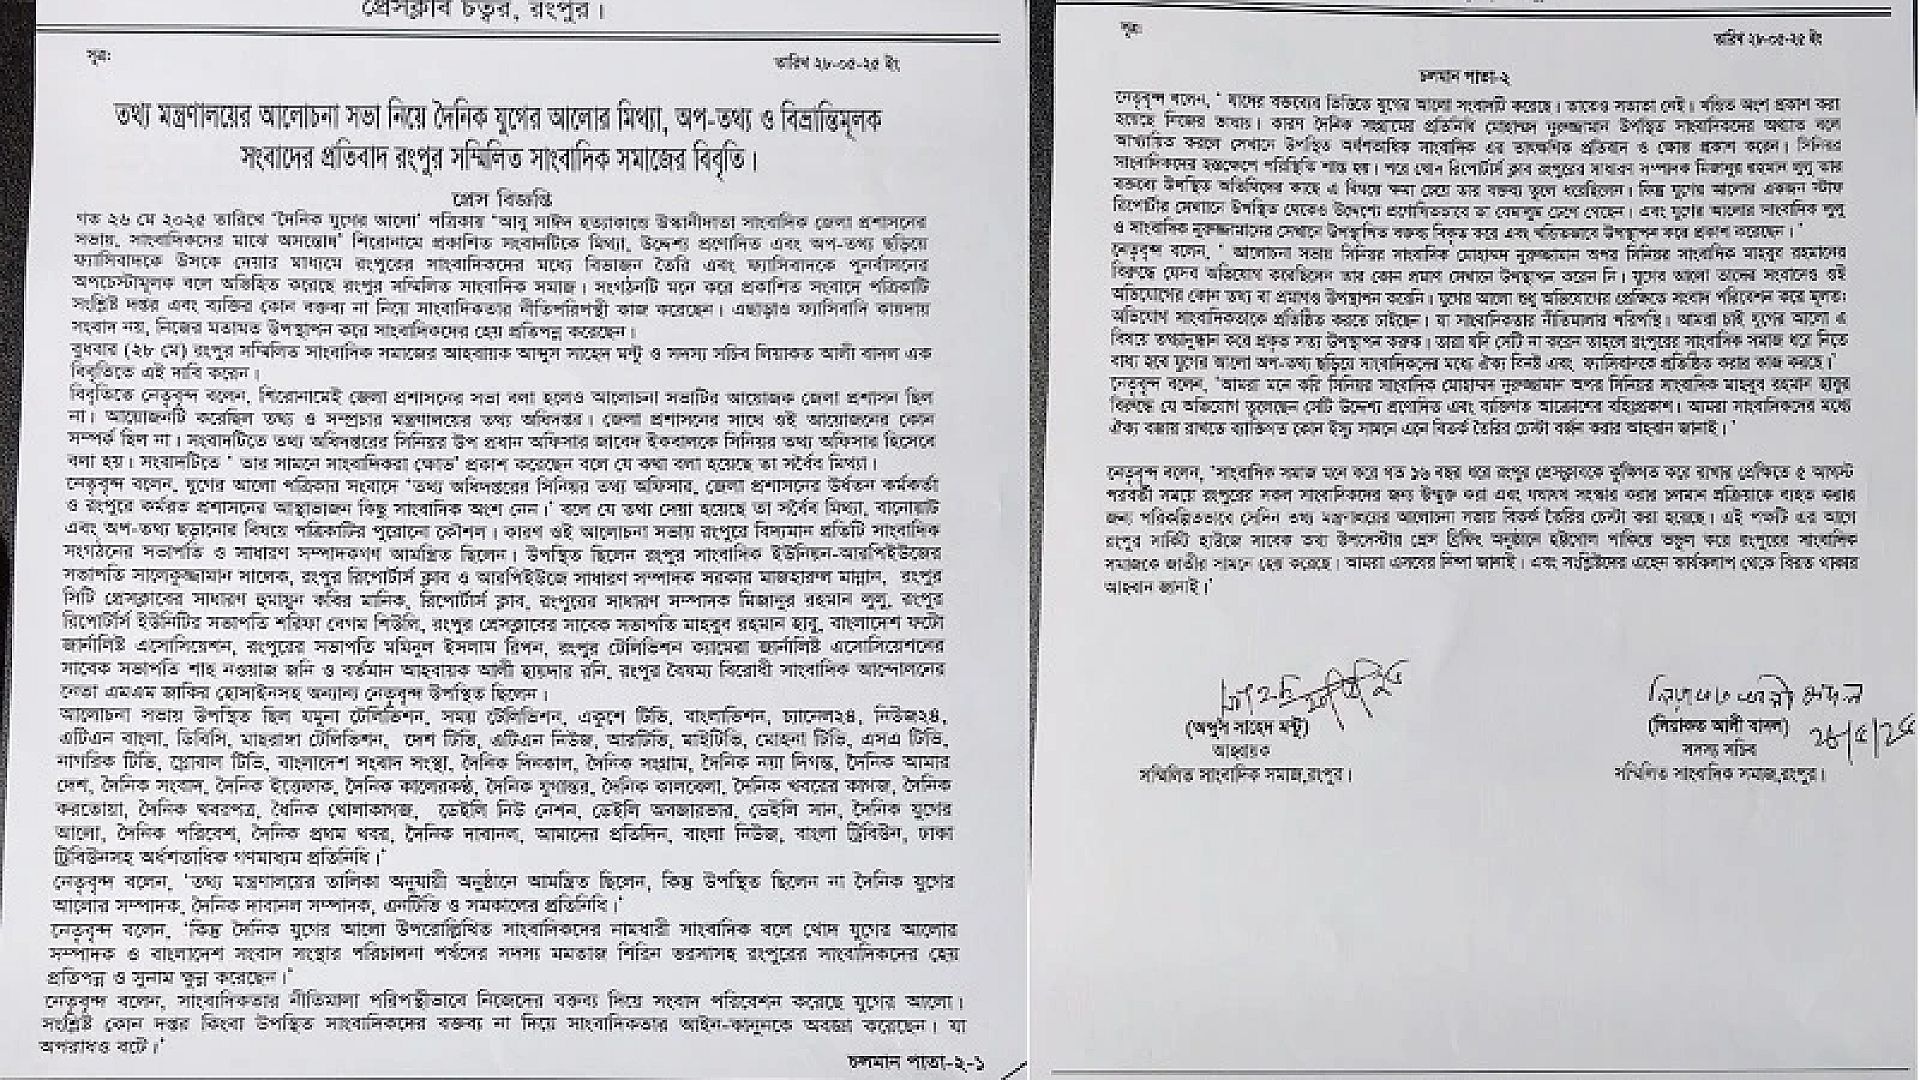 প্রেসক্লাব চত্বর, রংপুর।
সূত্র:
তারিখ ২৮-০৫-২৫ ইং
তথ্য মন্ত্রণালয়ের আলোচনা সভা নিয়ে দৈনিক যুগের আলোর মিথ্যা, অপ-তথ্য ও বিভ্রান্তিমূলক
সংবাদের প্রতিবাদ রংপুর সম্মিলিত সাংবাদিক সমাজের বিবৃতি।
প্রেস বিজ্ঞপ্তি
গত ২৬ মে ২০২৫ তারিখে 'দৈনিক যুগের আলো' পত্রিকায় "আবু সাঈদ হত্যাকান্ডে উস্কানীদাতা সাংবাদিক জেলা প্রশাসনের
সভায়, সাংবাদিকদের মাঝে অসন্তোষ' শিরোনামে প্রকাশিত সংবাদটিকে মিথ্যা, উদ্দেশ্য প্রণোদিত এবং অপ-তথ্য ছড়িয়ে
ফ্যাসিবাদকে উসকে দেয়ার মাধ্যমে রংপুরের সাংবাদিকদের মধ্যে বিভাজন তৈরি এবং ফ্যাসিবাদকে পুনর্বাসনের
অপচেস্টামূলক বলে অভিহিত করেছে রংপুর সম্মিলিত সাংবাদিক সমাজ। সংগঠনটি মনে করে প্রকাশিত সংবাদে পত্রিকাটি
সংশ্লিষ্ট দপ্তর এবং ব্যক্তির কোন বক্তব্য না নিয়ে সাংবাদিকতার নীতিপরিপন্থী কাজ করেছেন। এছাড়াও ফ্যাসিবাদি কায়দায়
সংবাদ নয়, নিজের মতামত উপস্থাপন করে সাংবাদিকদের হেয় প্রতিপন্ন করেছেন।
বুধবার (২৮ মে) রংপুর সম্মিলিত সাংবাদিক সমাজের আহবায়ক আব্দুস সাহেদ মন্টু ও সদস্য সচিব লিয়াকত আলী বাদল এক
বিবৃতিতে এই দাবি করেন।
বিবৃতিতে নেতৃবৃন্দ বলেন, শিরোনামেই জেলা প্রশাসনের সভা বলা হলেও আলোচনা সভাটির আয়োজক জেলা প্রশাসন ছিল
না। আয়োজনটি করেছিল তথ্য ও সম্প্রচার মন্ত্রণালয়ের তথ্য অধিদপ্তর। জেলা প্রশাসনের সাথে ওই আয়োজনের কোন
সম্পর্ক ছিল না। সংবাদটিতে তথ্য অধিদপ্তরের সিনিয়র উপ প্রধান অফিসার জাবেদ ইকবালকে সিনিয়র তথ্য অফিসার হিসেবে
বলা হয়। সংবাদটিতে ' তার সামনে সাংবাদিকরা ক্ষোভ' প্রকাশ করেছেন বলে যে কথা বলা হয়েছে তা সর্বৈব মিথ্যা।
নেতৃবৃন্দ বলেন, যুগের আলো পত্রিকার সংবাদে 'তথ্য অধিদপ্তরের সিনিয়র তথ্য অফিসার, জেলা প্রশাসনের উর্ধতন কর্মকর্তা
ও রংপুরে কর্মরত প্রশাসনের আস্থাভাজন কিছু সাংবাদিক অংশ নেন।' বলে যে তথ্য দেয়া হয়েছে তা সর্বৈব মিথ্যা, বানোয়াট
এবং অপ-তথ্য ছড়ানোর বিষয়ে পত্রিকাটির পুরোনো কৌশল। কারণ ওই আলোচনা সভায় রংপুরে বিদ্যমান প্রতিটি সাংবাদিক
সংগঠনের সভাপতি ও সাধারণ সম্পাদকগণ আমন্ত্রিত ছিলেন। উপস্থিত ছিলেন রংপুর সাংবাদিক ইউনিয়ন-আরপিইউজের
সভাপতি সালেকুজ্জামান সালেক, রংপুর রিপোর্টার্স ক্লাব ও আরপিইউজে সাধারণ সম্পাদক সরকার মাজহারুল মান্নান, রংপুর
সিটি প্রেসক্লাবের সাধারণ হুমায়ুন কবির মানিক, রিপোর্টার্স ক্লাব, রংপুরের সাধারণ সম্পাদক মিজানুর রহমান লুলু, রংপুর
রিপোর্টার্স ইউনিটির সভাপতি শরিফা বেগম শিউলি, রংপুর প্রেসক্লাবের সাবেক সভাপতি মাহবুব রহমান হাবু, বাংলাদেশ ফটো
জার্নালিষ্ট এসোসিয়েশন, রংপুরের সভাপতি মমিনুল ইসলাম রিপন, রংপুর টেলিভিশন ক্যামেরা জার্নালিষ্ট এসোসিয়েশনের
সাবেক সভাপতি শাহ নওয়াজ জনি ও বর্তমান আহবায়ক আলী হায়দার রনি, রংপুর বৈষম্য বিরোধী সাংবাদিক আন্দোলনের
নেতা এমএম জাকির হোসাইনসহ অন্যান্য নেতৃবৃন্দ উপস্থিত ছিলেন।
আলোচনা সভায় উপস্থিত ছিল যমুনা টেলিভিশন, সময় টেলিভিশন, একুশে টিভি, বাংলাভিশন, চ্যানেল২৪, নিউজ২৪,
এটিএন বাংলা, ডিবিসি, মাছরাঙ্গা টেলিভিশন, দেশ টিভি, এটিএন নিউজ, আরটিভি, মাইটিভি, মোহনা টিভি, এসএ টিভি,
নাগরিক টিভি, গ্লোবাল টিভি, বাংলাদেশ সংবাদ সংস্থা, দৈনিক দিনকাল, দৈনিক সংগ্রাম, দৈনিক নয়া দিগন্ত, দৈনিক আমার
দেশ, দৈনিক সংবাদ, দৈনিক ইত্তেফাক, দৈনিক কালেরকন্ঠ, দৈনিক যুগান্তর, দৈনিক কালবেলা, দৈনিক খবরের কাগজ, দৈনিক
করতোয়া, দৈনিক খবরপত্র, ধৈনিক খোলাকাগজ, ডেইলি নিউ নেশন, ডেইলি অবজারভার, ডেইলি সান, দৈনিক যুগের
আলো, দৈনিক পরিবেশ, দৈনিক প্রথম খবর, দৈনিক দাবানল, আমাদের প্রতিদিন, বাংলা নিউজ, বাংলা ট্রিবিউন, ঢাকা
ট্রিবিউনসহ অর্ধশতাধিক গণমাধ্যম প্রতিনিধি।'
নেতৃবৃন্দ বলেন, 'তথ্য মন্ত্রণালয়ের তালিকা অনুযায়ী অনুষ্ঠানে আমন্ত্রিত ছিলেন, কিন্তু উপস্থিত ছিলেন না দৈনিক যুগের
আলোর সম্পাদক, দৈনিক দাবানল সম্পাদক, এনটিভি ও সমকালের প্রতিনিধি।'
নেতৃবৃন্দ বলেন, 'কিন্তু দৈনিক যুগের আলো উপরোল্লিখিত সাংবাদিকদের নামধারী সাংবাদিক বলে খোদ যুগের আলোর
সম্পাদক ও বাংলাদেশ সংবাদ সংস্থার পরিচালনা পর্ষদের সদস্য মমতাজ শিরিন ভরসাসহ রংপুরের সাংবাদিকদের হেয়
প্রতিপন্ন ও সুনাম ক্ষুন্ন করেছেন।'
নেতৃবৃন্দ বলেন, সাংবাদিকতার নীতিমালা পরিপন্থীভাবে নিজেদের বক্তব্য দিয়ে সংবাদ পরিবেশন করেছে যুগের আলো।
সংশ্লিষ্ট কোন দপ্তর কিংবা উপস্থিত সাংবাদিকদের বক্তব্য না দিয়ে সাংবাদিকতার আইন-কানুনকে অবজ্ঞা করেছেন। যা
অপরাধও বটে।'
চলমান পাতা-২-১
সূত্র:
তারিখ ২৮-০৫-২৫ ইং
চলমান পাতা-২
নেতৃবৃন্দ বলেন, ' যাদের বক্তব্যের ভিত্তিতে যুগের আলো সংবাদটি করেছে। তাতেও সত্যতা নেই। খন্ডিত অংশ প্রকাশ করা
হয়েছে নিজের ভাষায়। কারণ দৈনিক সংগ্রামের প্রতিনিধি মোহাম্মদ নুরুজ্জামান উপস্থিত সাংবাদিকদের অখ্যাত বলে
আখ্যায়িত করলে সেখানে উপস্থিত অর্ধশতাধিক সাংবাদিক এর তাৎক্ষণিক প্রতিবাদ ও ক্ষোভ প্রকাশ করেন। সিনিয়র
সাংবাদিকদের হস্তক্ষেপে পরিস্থিতি শান্ত হয়। পরে খোদ রিপোর্টার্স ক্লাব রংপুরের সাধারণ সম্পাদক মিজানুর রহমান লুলু তার
বক্তব্যে উপস্থিত অতিথিদের কাছে এ বিষয়ে ক্ষমা চেয়ে তার বক্তব্য তুলে ধরেছিলেন। কিন্তু যুগের আলোর একজন স্টাফ
রিপোর্টার সেখানে উপস্থিত থেকেও উদ্দেশ্যে প্রণোদিতভাবে তা বেমালুম চেপে গেছেন। এবং যুগের আলোর সাংবাদিক লুলু
ও সাংবাদিক নুরুজ্জামানের সেখানে উপস্থাপিত বক্তব্য বিকৃত করে এবং খন্ডিতভাবে উপস্থাপন করে প্রকাশ করেছেন।'
নেতৃবৃন্দ বলেন, ' আলোচনা সভায় সিনিয়র সাংবাদিক মোহাম্মদ নুরুজ্জামান অপর সিনিয়র সাংবাদিক মাহবুব রহমানের
বিরুদ্ধে যেসব অভিযোগ করেছিলেন তার কোন প্রমাণ সেখানে উপস্থাপন করেন নি। যুগের আলো তাদের সংবাদেও ওই
অভিযোগের কোন তথ্য বা প্রমাণও উপস্থাপন করেনি। যুগের আলো শুধু অভিযোগের প্রেক্ষিতে সংবাদ পরিবেশন করে মূলত:
অভিযোগ সাংবাদিকতাকে প্রতিষ্ঠিত করতে চাইছেন। যা সাংবাদিকতার নীতিমালার পরিপন্থি। আমরা চাই যুগের আলো এ
বিষয়ে তথ্যানুন্ধান করে প্রকৃত সত্য উপস্থাপন করুক। তারা যদি সেটি না করেন তাহলে রংপুরের সাংবাদিক সমাজ ধরে নিতে
বাধ্য হবে যুগের আলো অপ-তথ্য ছড়িয়ে সাংবাদিকদের মধ্যে ঐক্য বিনষ্ট এবং ফ্যাসিবাদকে প্রতিষ্ঠিত করার কাজ করছে।'
নেতৃবৃন্দ বলেন, 'আমরা মনে করি সিনিয়র সাংবাদিক মোহাম্মদ নুরুজ্জামান অপর সিনিয়র সাংবাদিক মাহবুব রহমান হাবুর
বিরুদ্ধে যে অভিযোগ তুলেছেন সেটি উদ্দেশ্য প্রণোদিত এবং ব্যক্তিগত আক্রোশের বহিঃপ্রকাশ। আমরা সাংবাদিকদের মধ্যে
ঐক্য বজায় রাখতে ব্যাক্তিগত কোন ইস্যু সামনে এনে বিতর্ক তৈরির চেস্টা বর্জন করার আহবান জানাই। '
নেতৃবৃন্দ বলেন, 'সাংবাদিক সমাজ মনে করে গত ১৬ বছর ধরে রংপুর প্রেসক্লাবকে কুক্ষিগত করে রাখার প্রেক্ষিতে ৫ আগস্ট
পরবর্তী সময়ে রংপুরের সকল সাংবাদিকদের জন্য উন্মুক্ত করা এবং যথাযথ সংস্কার করার চলমান প্রক্রিয়াকে ব্যহত করার
জন্য পরিকল্পিতভাবে সেদিন তথ্য মন্ত্রণালয়ের আলোচনা সভায় বিতর্ক তৈরির চেস্টা করা হয়েছে। এই পক্ষটি এর আগে
রংপুর সার্কিট হাউজে সাবেক তথ্য উপদেস্টার প্রেস ব্রিফিং অনুষ্ঠানে হট্টগোল পাকিয়ে ভন্ডুল করে রংপুরের সাংবাদিক
সমাজকে জাতীর সামনে হেয় করেছে। আমরা এসবের নিন্দা জানাই। এবং সংশ্লিষ্টদের এহেন কার্যকলাপ থেকে বিরত থাকার
আহবান জানাই।'
(আব্দুস সাহেদ মন্টু)
আহবায়ক
সম্মিলিত সাংবাদিক সমাজ,রংপুর।
লিয়াকত আলী বাদল
(লিয়াকত আলী বাদল)
২৮/৫/২৫
সদস্য সচিব
সম্মিলিত সাংবাদিক সমাজ,রংপুর।